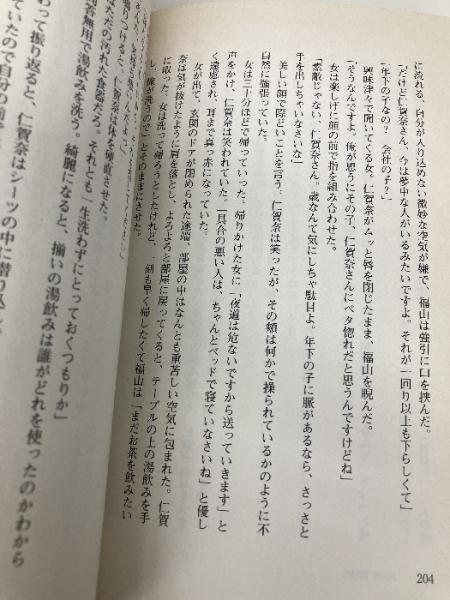 に流れる、自分が入り込めない微妙な空気が嫌で、福山は強引に口を挟んだ。
「だけど仁賀奈さん、今は夢中な人がいるみたいですよ。それが一回り以上も下らしくて」
「年下の子なの? 会社の子?」
興味津々で聞いてくる女。仁賀奈がムッと唇を閉じたまま、福山を睨んだ。
「そうなんですよ。俺が思うにその子、仁賀奈さんにベタ惚れだと思うんですけどね」
女は楽しげに顔の前で指を組み合わせた。
「素敵じゃない、仁賀奈さん。歳なんて気にしちゃ駄目よ。年下の子に脈があるなら、さっさと
手を出しちゃいなさいな」
美しい顔で際どいことを言う。仁賀奈は笑ったが、その頬は何かで操られているかのように不
自然に強張っていた。
女は三十分ほどで帰っていった。帰りかけた女に「夜道は危ないですから送っていきます」と
声をかけ、仁賀奈は笑われていた。「具合の悪い人は、ちゃんとベッドで寝ていなさいね」と優し
く遠慮され、耳まで真っ赤になっていた。
女が出て、玄関のドアが閉められた途端、部屋の中はなんとも重苦しい空気に包まれた。仁賀
奈は気が抜けたように肩を落とし、よろよろと部屋に戻ってくると、テーブルの上の湯飲みを手
に取った。女は洗って帰ろうとしたけれど、一刻も早く帰したくて福山は「まだお茶を飲みたい
し、俺が洗うので」とそのままにさせた。
りつけると、仁賀奈は体を硬直させた。
なただの汚れた食器だろ。それとも一生洗わずにとっておくつもりか」
無用で湯飲みを洗う。綺麗になると、揃いの湯飲みは誰がどれを使ったのかわから
わって振り返ると、仁賀奈はシーツの中に潜り込
ていたので自分の
204